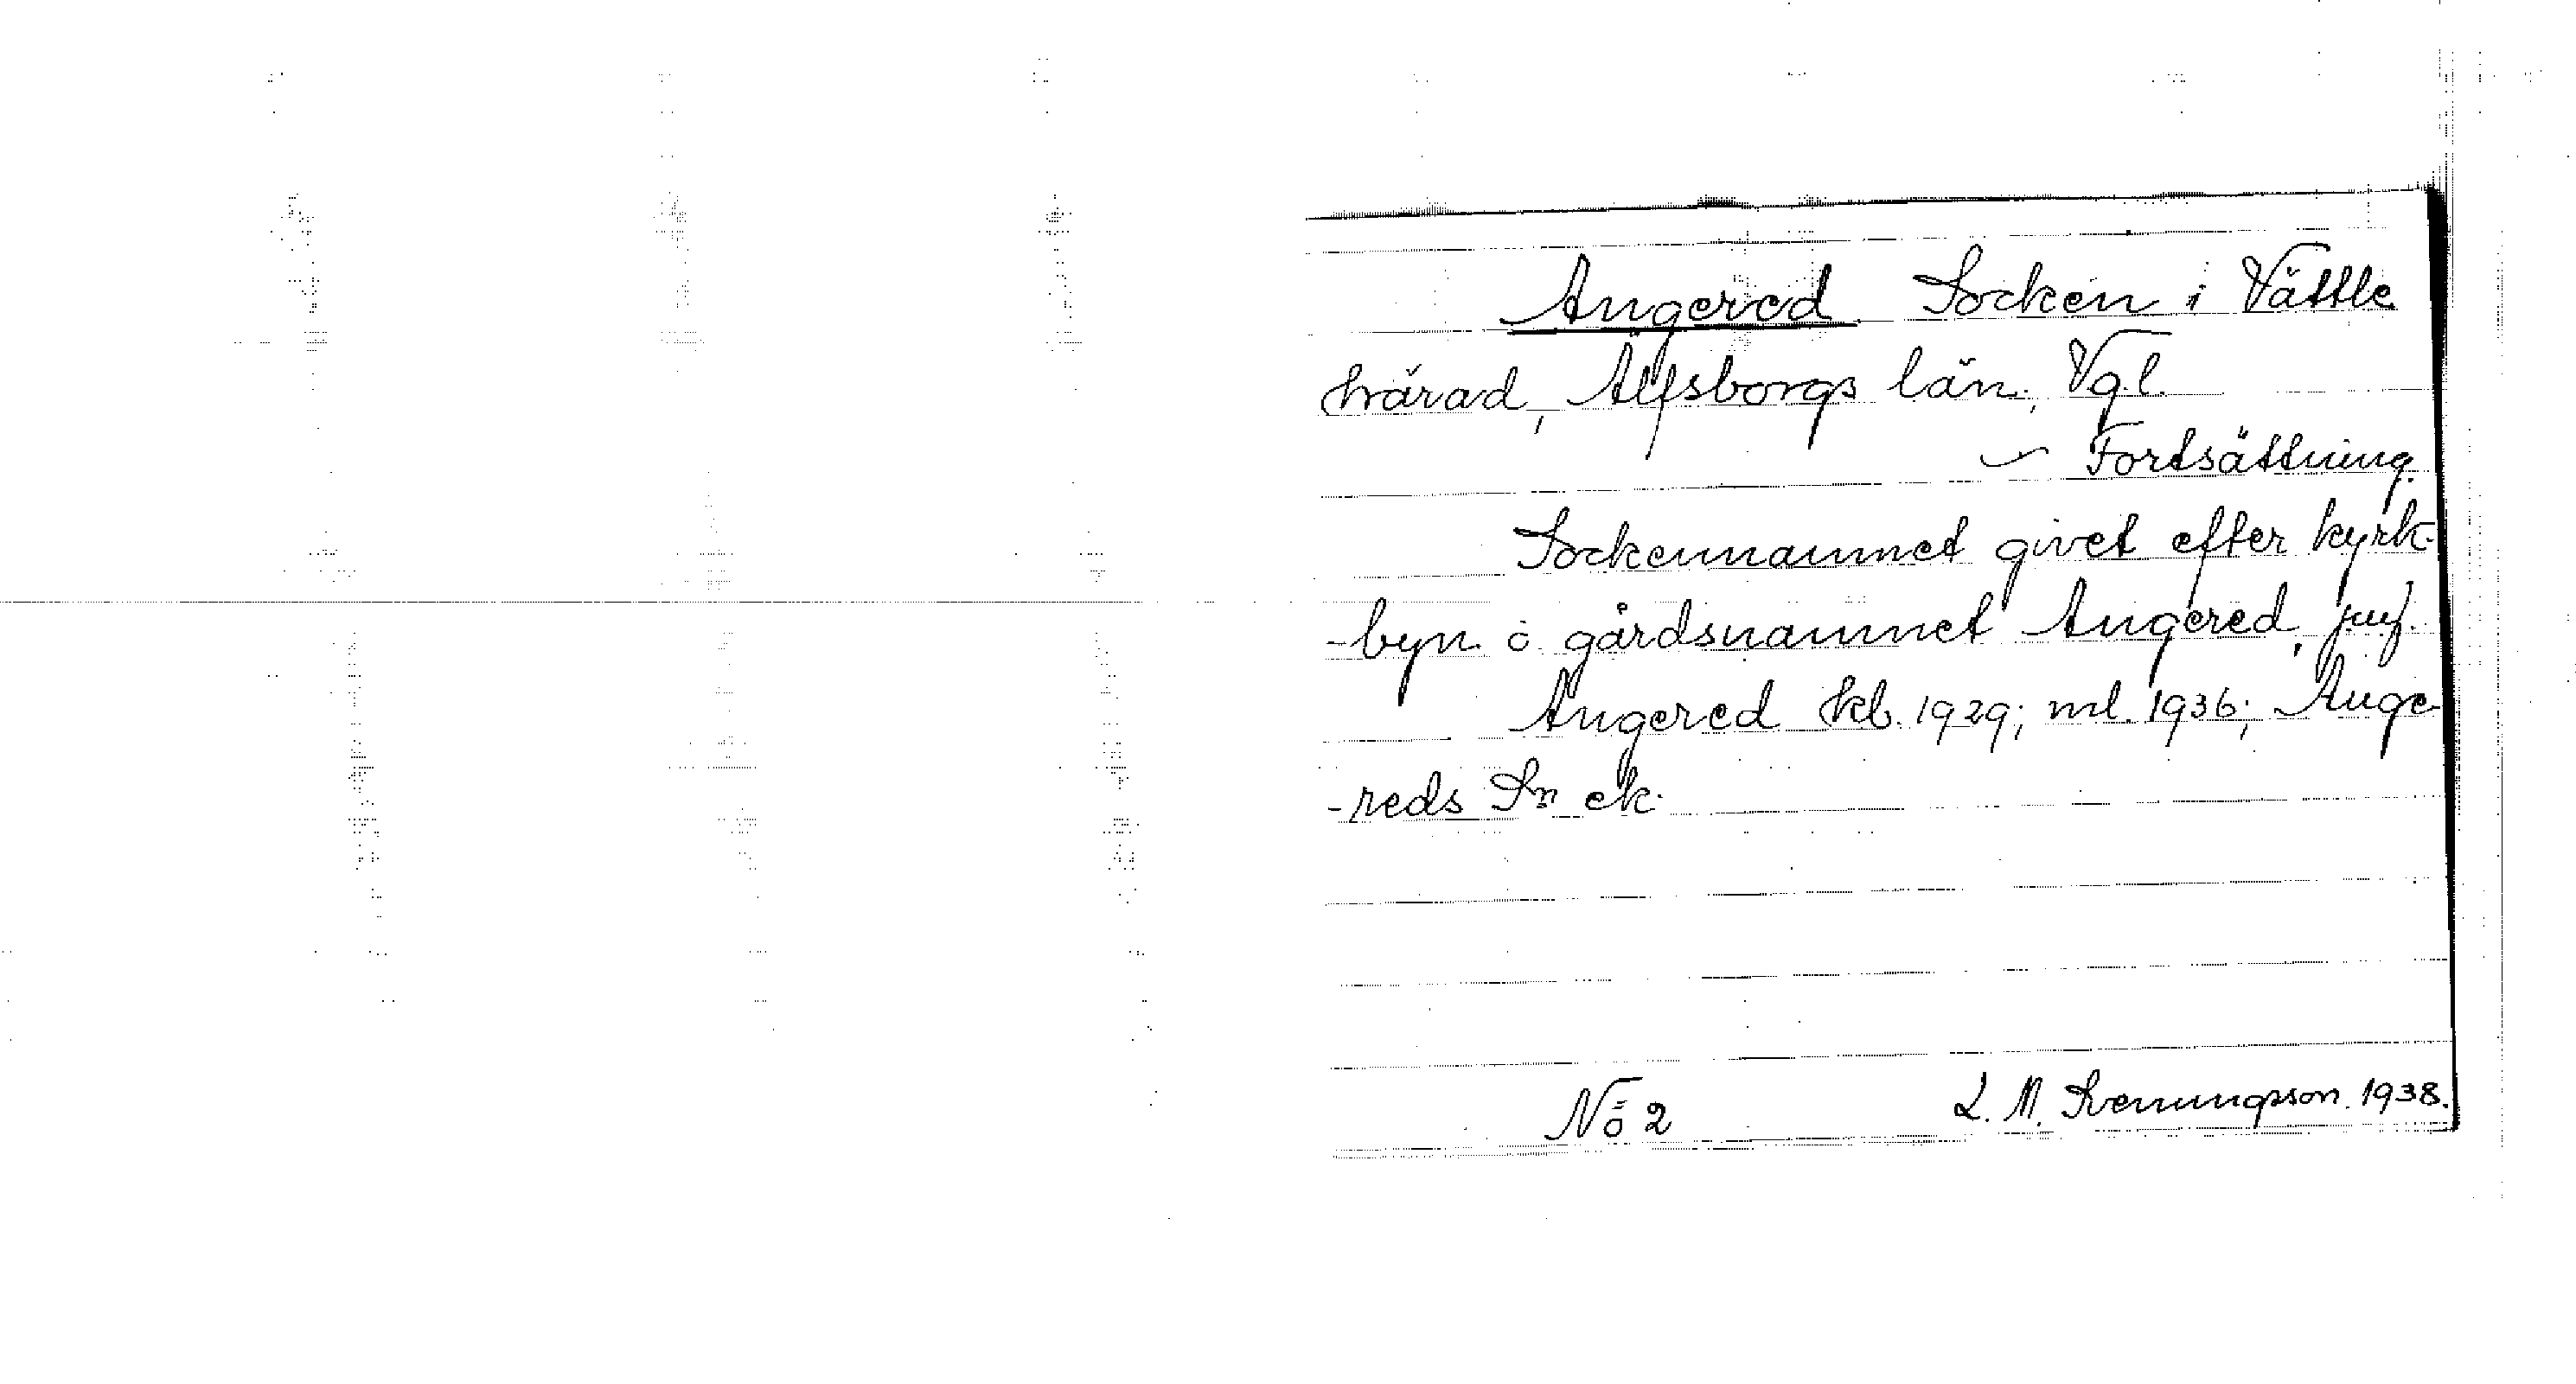 Angered Socken i Vättle
härad, Älfsborgs län, Vgl.
~ Fortsättning.
Sockennamnet givet efter kyrk-
-byn o. gårdsnamnet Angered, jmf.
Angered hkb. 1929; ml. 1936; Ange-
-reds Sn ek.
No 2 L. M. Svenungsson. 1938.